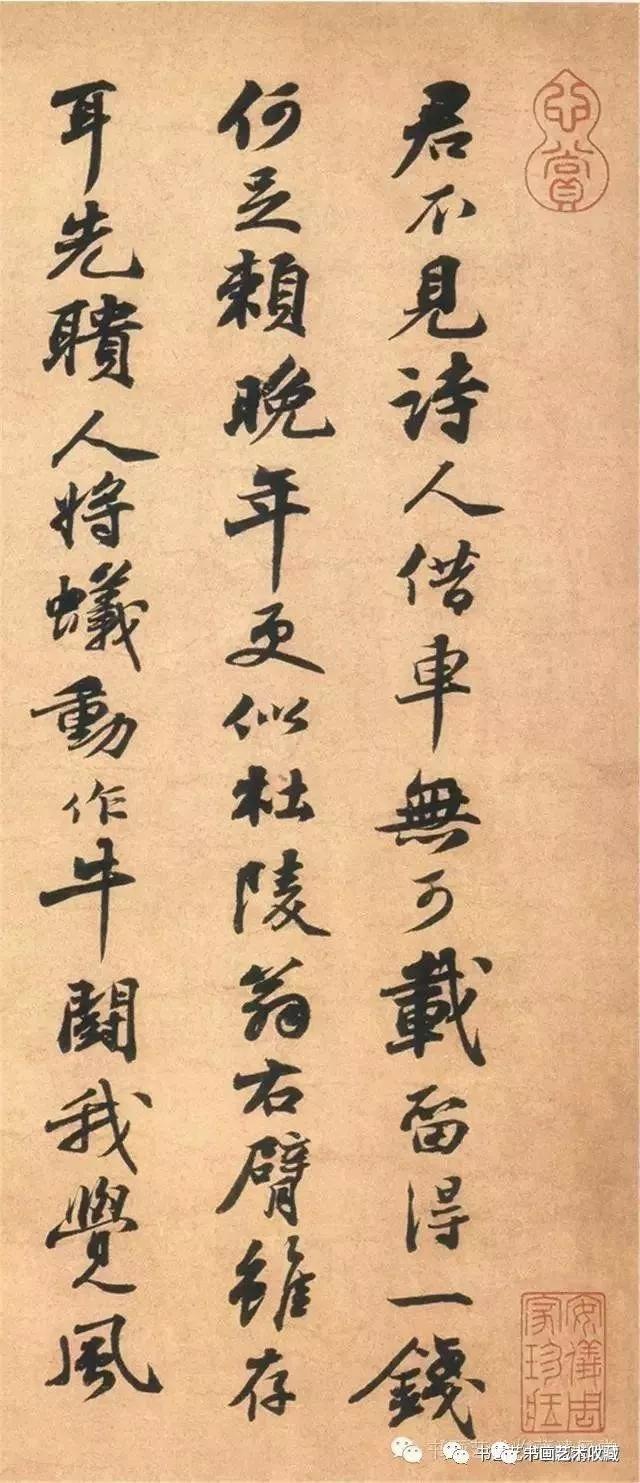 心賞
君不見詩人借車無可載留得一錢
何足賴晚年更似杜陵翁右臂雖存
耳先聵人將蟻動作牛闘我覺風
安儀周家珍藏
书画艺术收藏